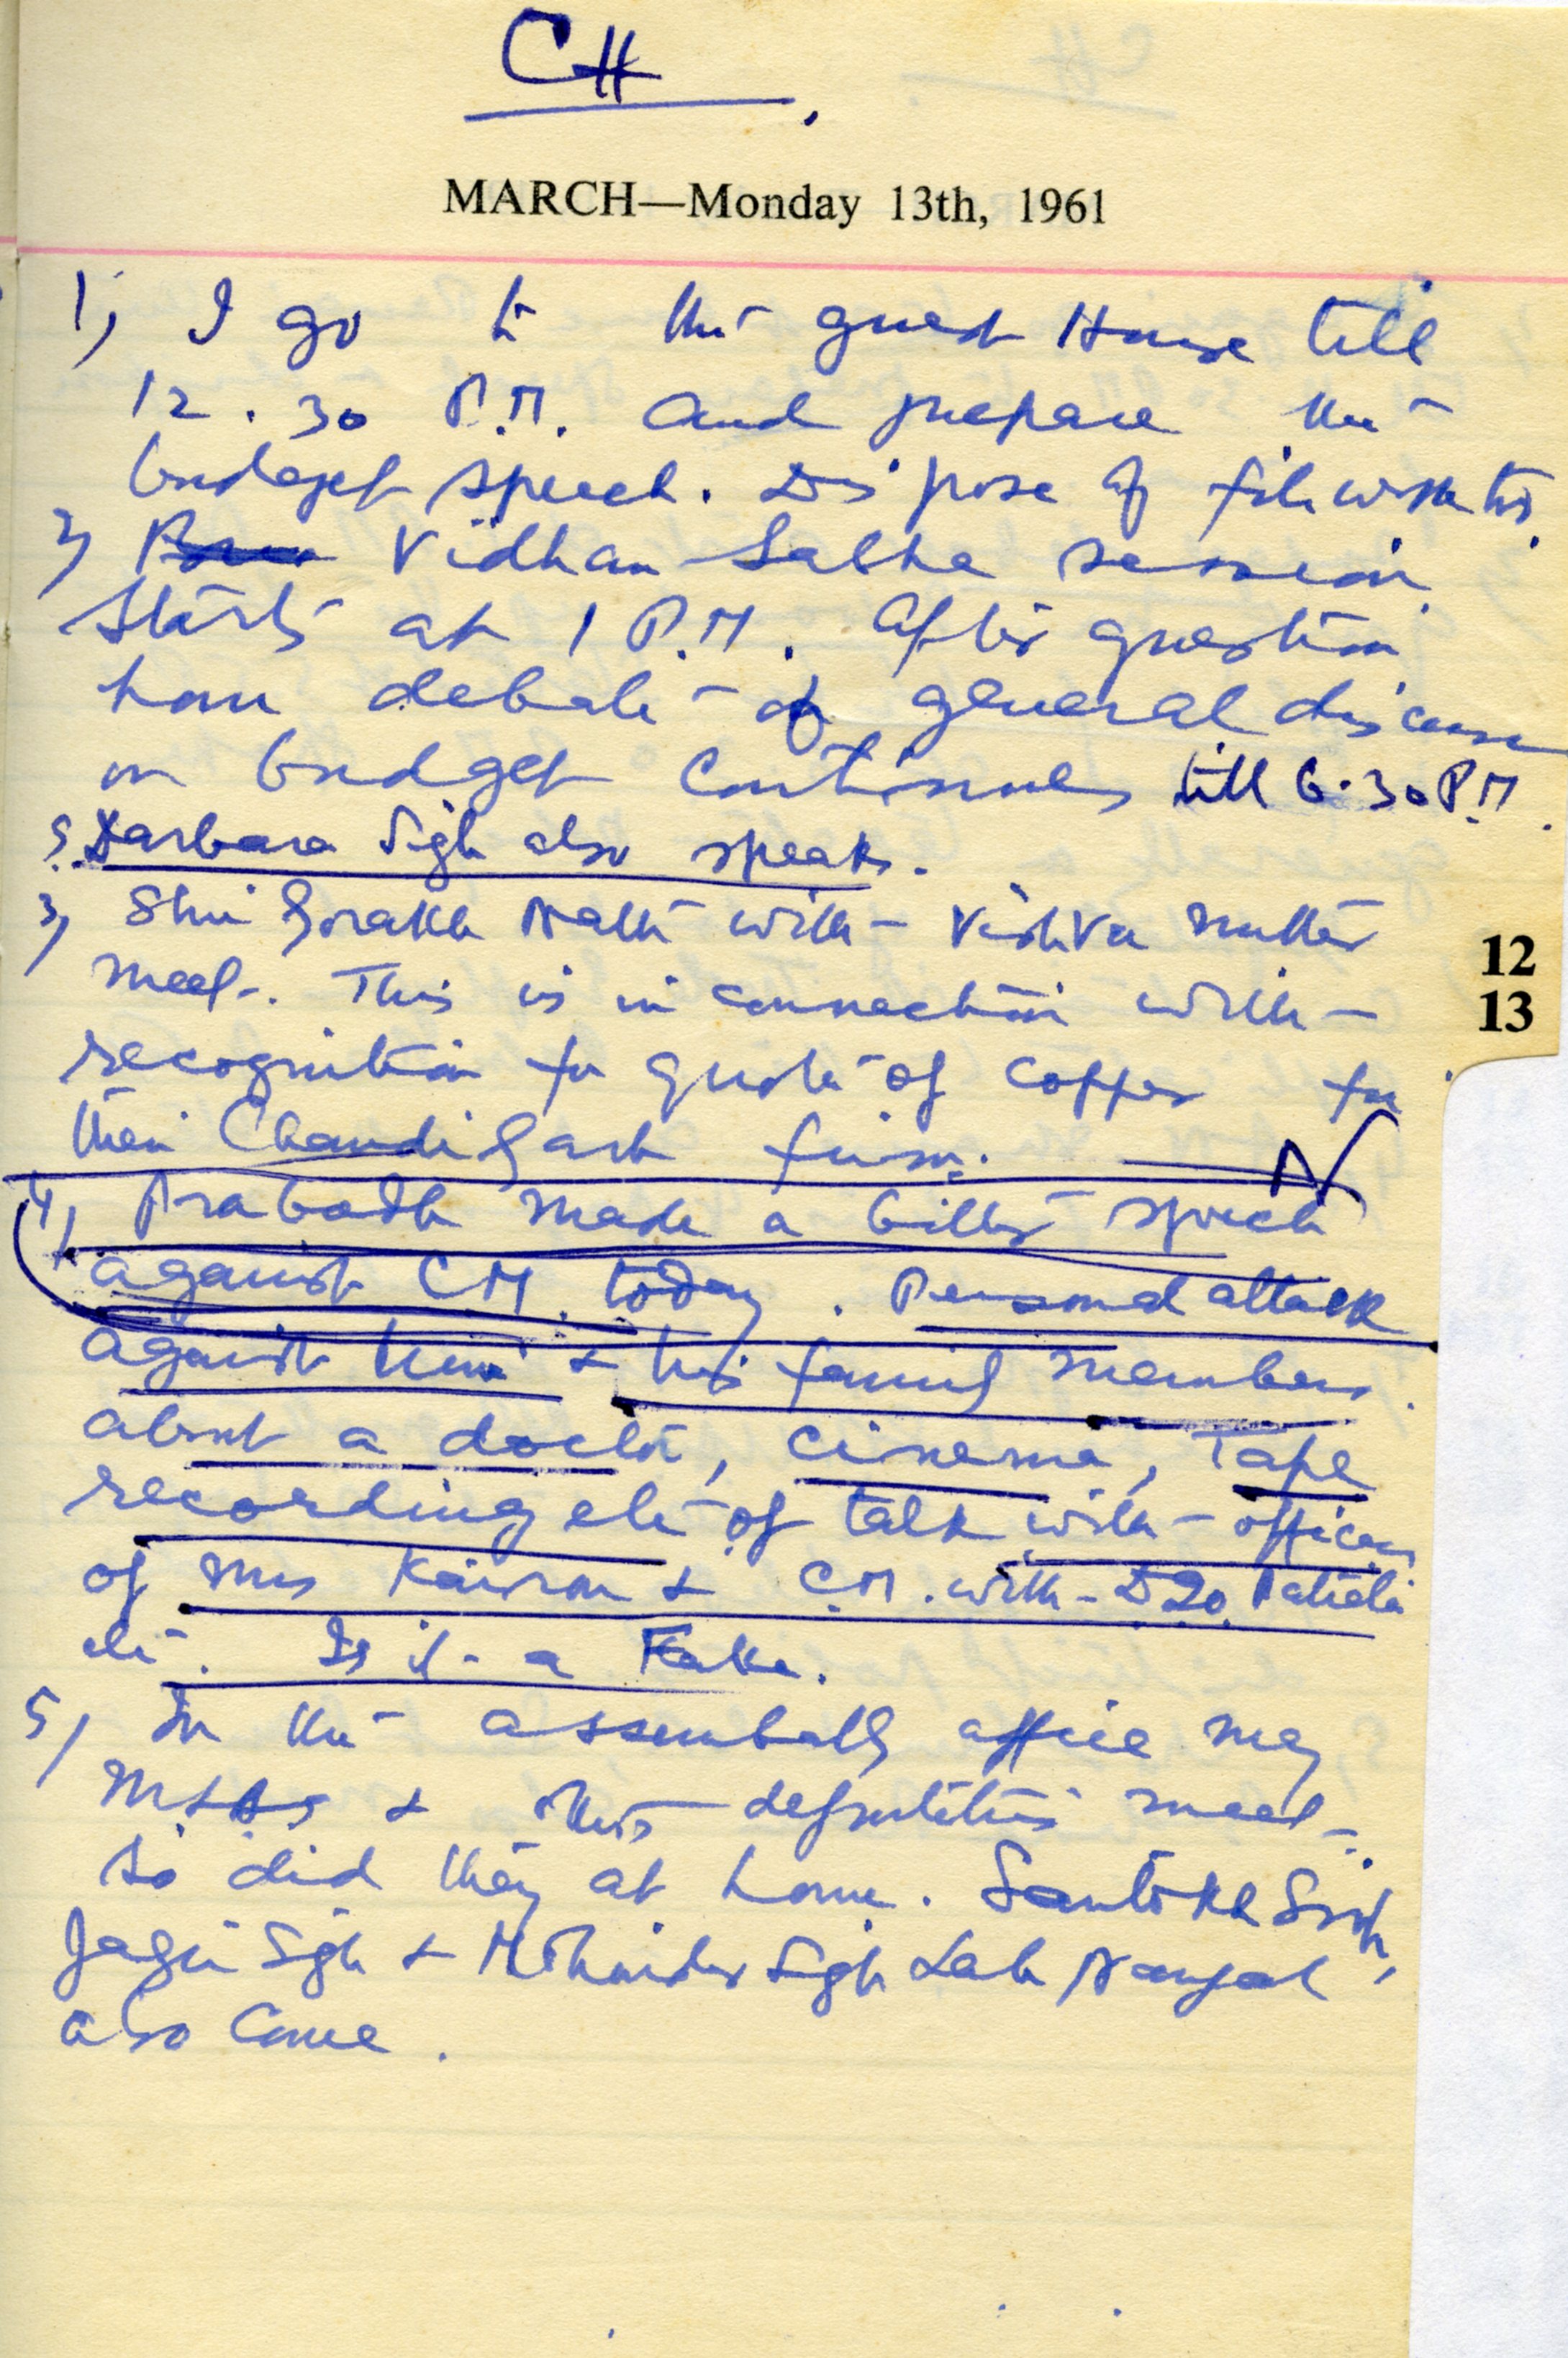 CH
MARCH—Monday 13th, 1961
1) I go to the guest House till
12.30 P.M. and prepare the
budget speech. Dispose of file work too.
2) Vidhan Sabha session
starts at 1 P.M. After question
hour debate of general discussion
on budget continues till 6.30 P.M.
S. Darbara Sigh also speaks.
3) Shri Gorakh Nath with Vishva Mutter
meet. This is in connection with
recognition for quota of copper for
their Chandigarh firm.
N
4) Prabodh made a bitter speech
against C.M. today. Personal attack
against him & his family members
about a doctor, cinema, Tape
recording etc of talk with officers
of Mrs Kairon & C.M. with Patiala
etc. Is it a Fake.
5) In the assembally office my
MLAs & other deputations meet.
So did they at home. Santokh Singh,
Jagir Sigh & Mohinder Sigh Nangal
also came.
12
13